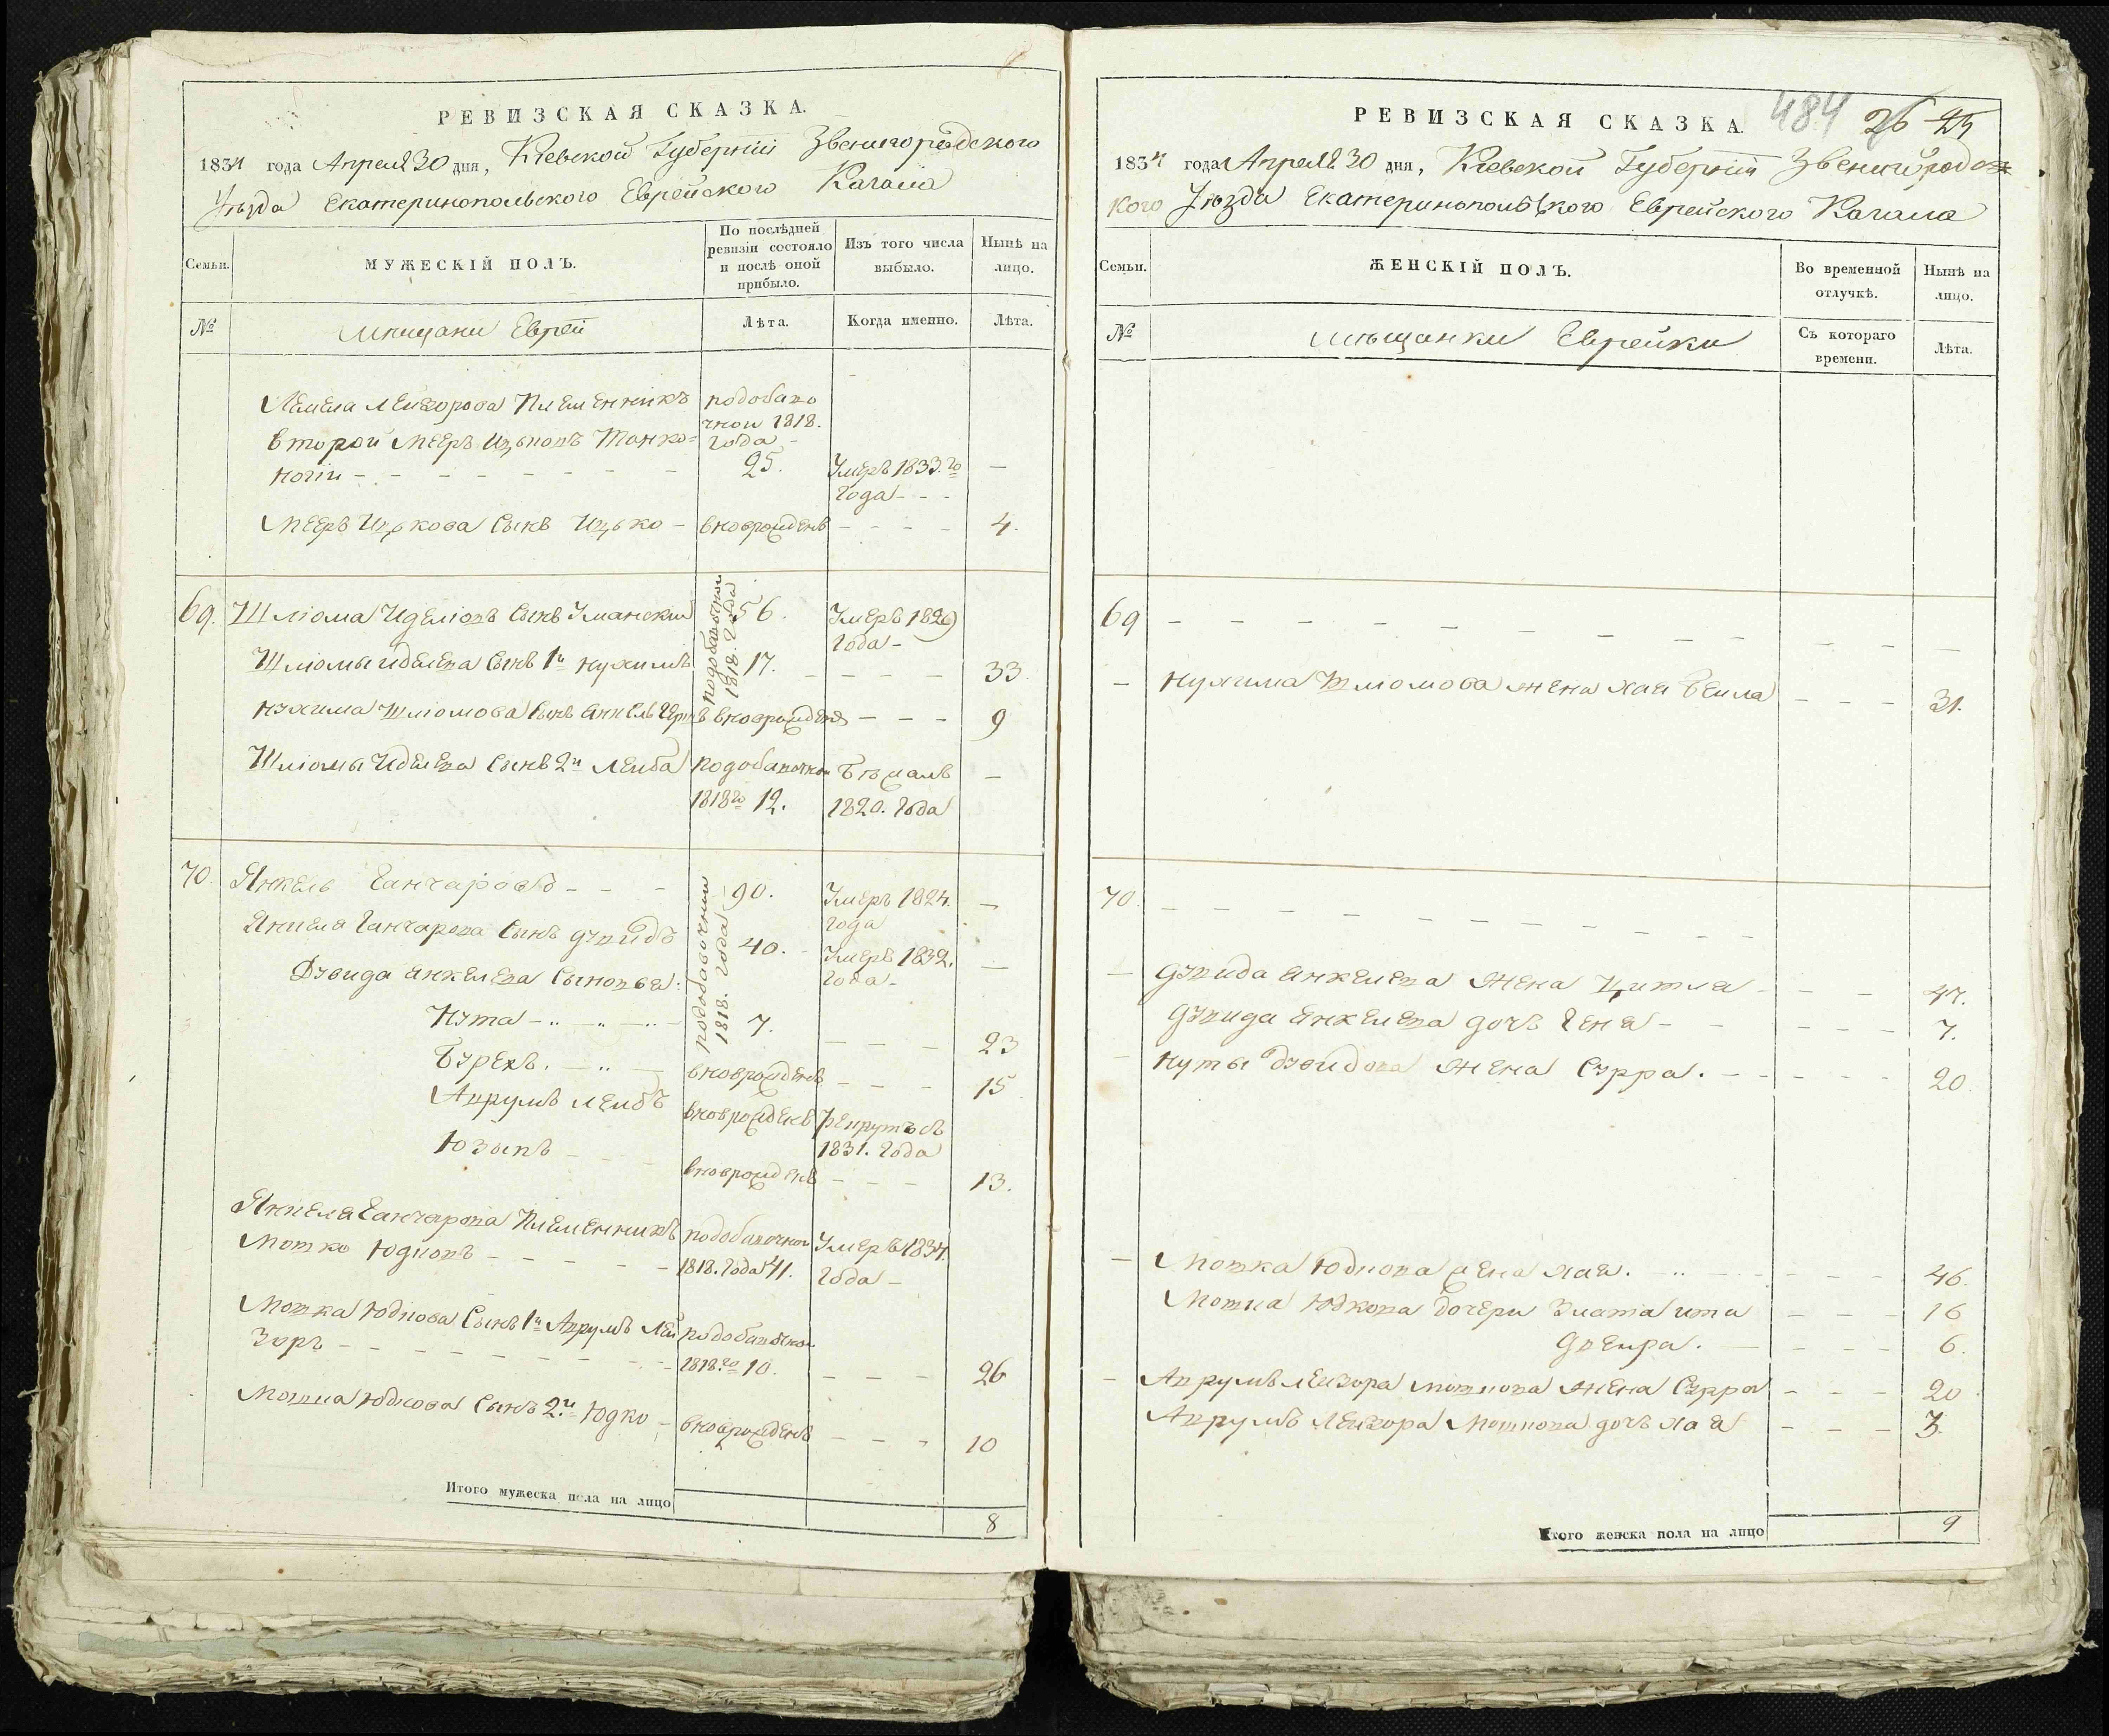 РЕВИЗСКАЯ СКАЗКА.
1834 года Апреля 30 дня, Кіевской Губерніи Звенигородского
Уезда Екатеринопольского Еврейского Кагала
Семьи.
МУЖЕСКІЙ ПОЛЪ.
По послѣдней
ревизіи состояло
и послѣ оной
прибыло.
Изъ того числа
выбыло.
Нынѣ на
лицо.
№
Мещани Евреи
Лѣта.
Когда именно.
Лѣта.
Лемела Лейзорова Племенникъ
второй Мееръ Ицьковъ Тонко=
ногіи
подобаво
чнои 1818.
года
25.
Умеръ 1833.го
года
—
Мееръ Ицькова Сынъ Ицько
вноврожденъ
4.
69.
Шліома Иделіовъ Сынъ Уманскіи
подобавочнои
1818. года
56.
Умеръ 1829
года
Шліомы Иделева Сынъ 1й Нухимъ
17.
33
Нухима Шліомова Сынъ Анкель Герш
вноврожденъ
9
Шліомы Иделева Сынъ 2й Лейба
подобавочнои
1818го 12.
Бежалъ
1820. года
—
70.
Янкель Ганчаровъ
подобавочнои
1818. года
90.
Умеръ 1824.
года
—
Янкеля Ганчарова Сынъ Дувидъ
40.
Умеръ 1832.
года
—
Дувида Янкелева Сыновья:
Нута
7.
23
Бурехъ.
вноврожденъ
15
Аврумъ Лейбъ
вноврожденъ
Рекрутъ съ
1831. года
Юзыпъ
вноврожденъ
13.
Янкеля Ганчарова Племенникъ
Мотко Юдковъ
подобавочнои
1818. года 41.
Умеръ 1834.
года
Мотка Юдкова Сынъ 1й Аврумъ Лей
зоръ
подобавочнои
1818.го 10.
26
Мотка Юдкова Сынъ 2.й Юдко
вноврожденъ
10
Итого мужеска пола на лицо
8
РЕВИЗСКАЯ СКАЗКА.
484 26 25
1834 года Апреля 30 дня, Кіевской Губерніи Звенигородс
кого Уезда Екатеринопольского Еврейского Кагала
Семьи.
ЖЕНСКІЙ ПОЛЪ.
Во временной
отлучкѣ.
Нынѣ на
лицо.
№
Мѣщанки Еврейки
Съ котораго
времени.
Лѣта.
69
Нухима Шліомова жена Хая Беила
31.
70.
Дувида Янкелева Жена Цитля
47.
Дувида Янкелева дочь Геня
7.
Нуты Дувидова Жена Сурра.
20.
Мотка Юдкова жена Хая.
46.
Мотка Юдкова дочери Злата Ита
16
Двеира.
6.
Аврумъ Лейзора Моткова Жена Сурра
20
Аврумъ Лейзора Моткова дочь Хая
3.
Итого женска пола на лицо
9